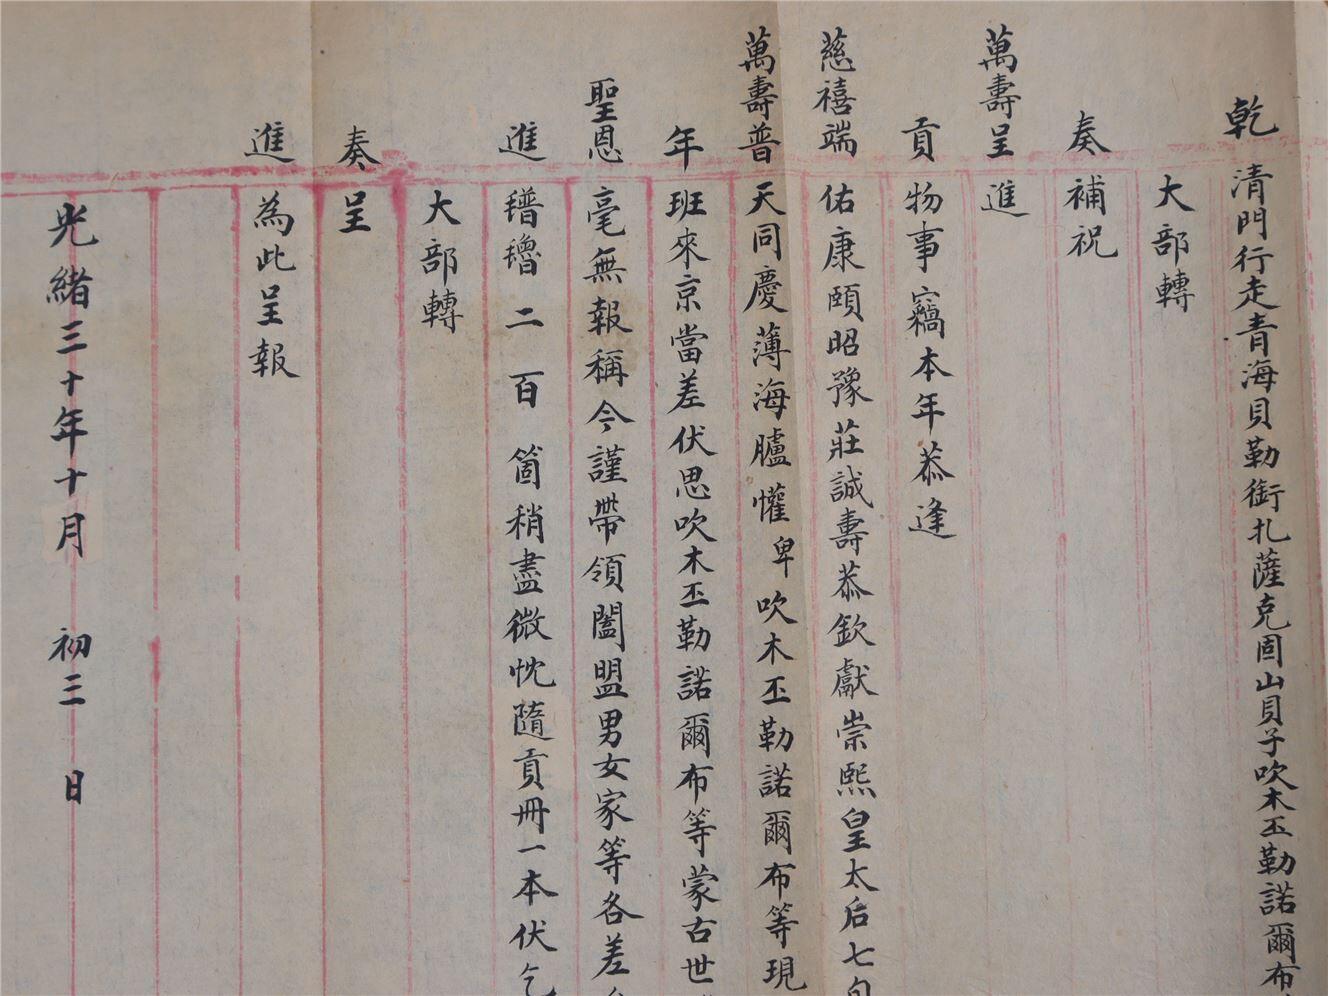 乾清門行走青海貝勒銜扎薩克固山貝子吹木丕勒諾爾布
大部轉
奏補祝
萬壽呈進
貢物事竊本年恭逢
慈禧端佑康頤昭豫莊誠壽恭欽獻崇熙皇太后七旬
萬壽普天同慶薄海臚懽卑吹木丕勒諾爾布等現
年班來京當差伏思吹木丕勒諾爾布等蒙古世
聖恩毫無報稱今謹帶領闔盟男女家等各差
進氆氌二百箇稍盡微忱隨貢冊一本伏乞
大部轉
奏呈
進為此呈報
光緒三十年十月初三日